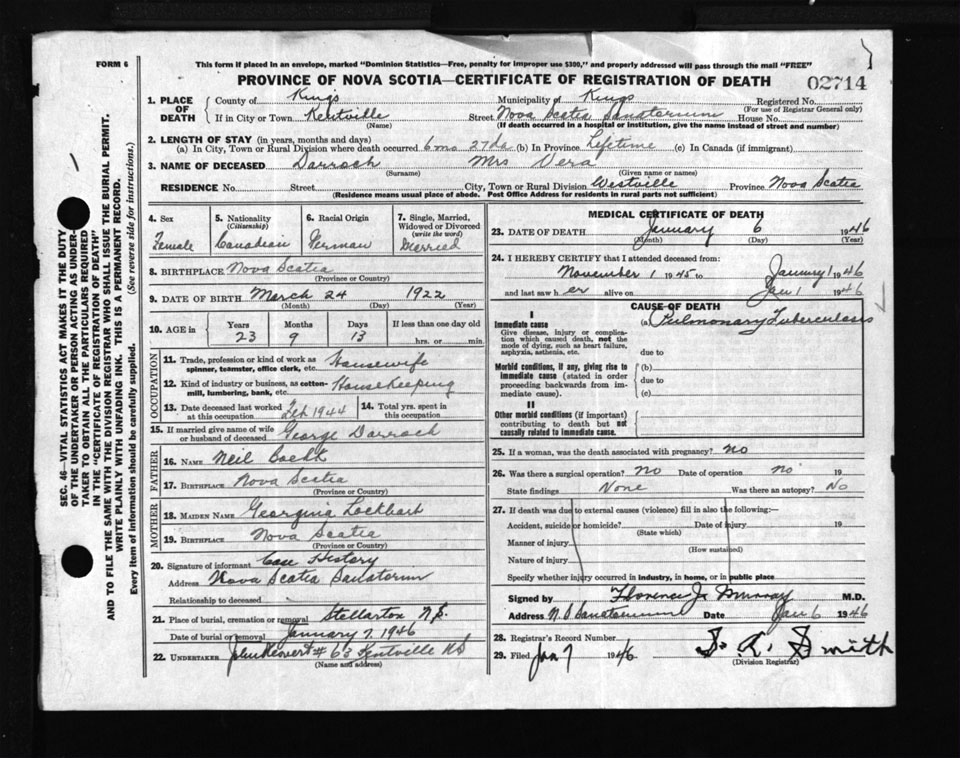 FORM 6
This form if placed in an envelope, marked "Dominion Statistics—Free, penalty for improper use $300," and properly addressed will pass through the mail "FREE"
PROVINCE OF NOVA SCOTIA—CERTIFICATE OF REGISTRATION OF DEATH
02714
1. PLACE OF DEATH County of Kings Municipality of Kings Registered No.
(For use of Registrar General only)
If in City or Town Kentville Street Nova Scotia Sanatorium House No.
(Name) (If death occurred in a hospital or institution, give the name instead of street and number)
2. LENGTH OF STAY (in years, months and days)
(a) In City, Town or Rural Division where death occurred 6 mo 27 da (b) In Province Lifetime (c) In Canada (if immigrant)
3. NAME OF DECEASED Darroch Mrs Vera
(Surname) (Given name or names)
RESIDENCE No. Street City, Town or Rural Division Westville Province Nova Scotia
(Residence means usual place of abode. Post Office Address for residents in rural parts not sufficient)
SEC. 46—VITAL STATISTICS ACT MAKES IT THE DUTY
OF THE UNDERTAKER OR PERSON ACTING AS UNDER-
TAKER TO OBTAIN ALL THE PARTICULARS REQUIRED
IN THE "CERTIFICATE OF REGISTRATION OF DEATH"
AND TO FILE THE SAME WITH THE DIVISION REGISTRAR WHO SHALL ISSUE THE BURIAL PERMIT.
WRITE PLAINLY WITH UNFADING INK. THIS IS A PERMANENT RECORD.
Every item of information should be carefully supplied. (See reverse side for instructions.)
4. Sex Female
5. Nationality (Citizenship) Canadian
6. Racial Origin German
7. Single, Married, Widowed or Divorced (write the word) Married
8. BIRTHPLACE Nova Scotia
(Province or Country)
9. DATE OF BIRTH March 24 1922
(Month) (Day) (Year)
10. AGE in Years Months Days If less than one day old
23 9 13 hrs. or min.
OCCUPATION
11. Trade, profession or kind of work as spinner, teamster, office clerk, etc. Housewife
12. Kind of industry or business, as cotton-mill, lumbering, bank, etc. Housekeeping
13. Date deceased last worked at this occupation Feb 1944
14. Total yrs. spent in this occupation
15. If married give name of wife or husband of deceased George Darroch
FATHER
16. NAME Neil
17. BIRTHPLACE Nova Scotia
(Province or Country)
MOTHER
18. MAIDEN NAME Georgina Lockhart
19. BIRTHPLACE Nova Scotia
(Province or Country)
20. Signature of informant Case History
Address Nova Scotia Sanatorium
Relationship to deceased
21. Place of burial, cremation or removal Stellarton N.S.
Date of burial or removal January 7, 1946
22. UNDERTAKER John # 63 Kentville NS
(Name and address)
MEDICAL CERTIFICATE OF DEATH
23. DATE OF DEATH January 6 1946
(Month) (Day) (Year)
24. I HEREBY CERTIFY that I attended deceased from:
November 1 1945 to January 1 1946
and last saw h er alive on Jan 1 1946
CAUSE OF DEATH
I
Immediate cause (a) Pulmonary Tuberculosis
Give disease, injury or complication which caused death, not the mode of dying, such as heart failure, asphyxia, asthenia, etc.
due to
Morbid conditions, if any, giving rise to immediate cause (stated in order proceeding backwards from immediate cause).
(b)
due to
(c)
II
Other morbid conditions (if important) contributing to death but not causally related to immediate cause.
25. If a woman, was the death associated with pregnancy? No
26. Was there a surgical operation? No Date of operation No 19
State findings None Was there an autopsy? No
27. If death was due to external causes (violence) fill in also the following:—
Accident, suicide or homicide? Date of injury 19
(State which)
Manner of injury
(How sustained)
Nature of injury
Specify whether injury occurred in industry, in home, or in public place
Signed by Florence J. Murray M.D.
Address N.S Sanatorium Date Jan 6 1946
28. Registrar's Record Number
29. Filed Jan 7 1946 S. A. Smith
(Division Registrar)